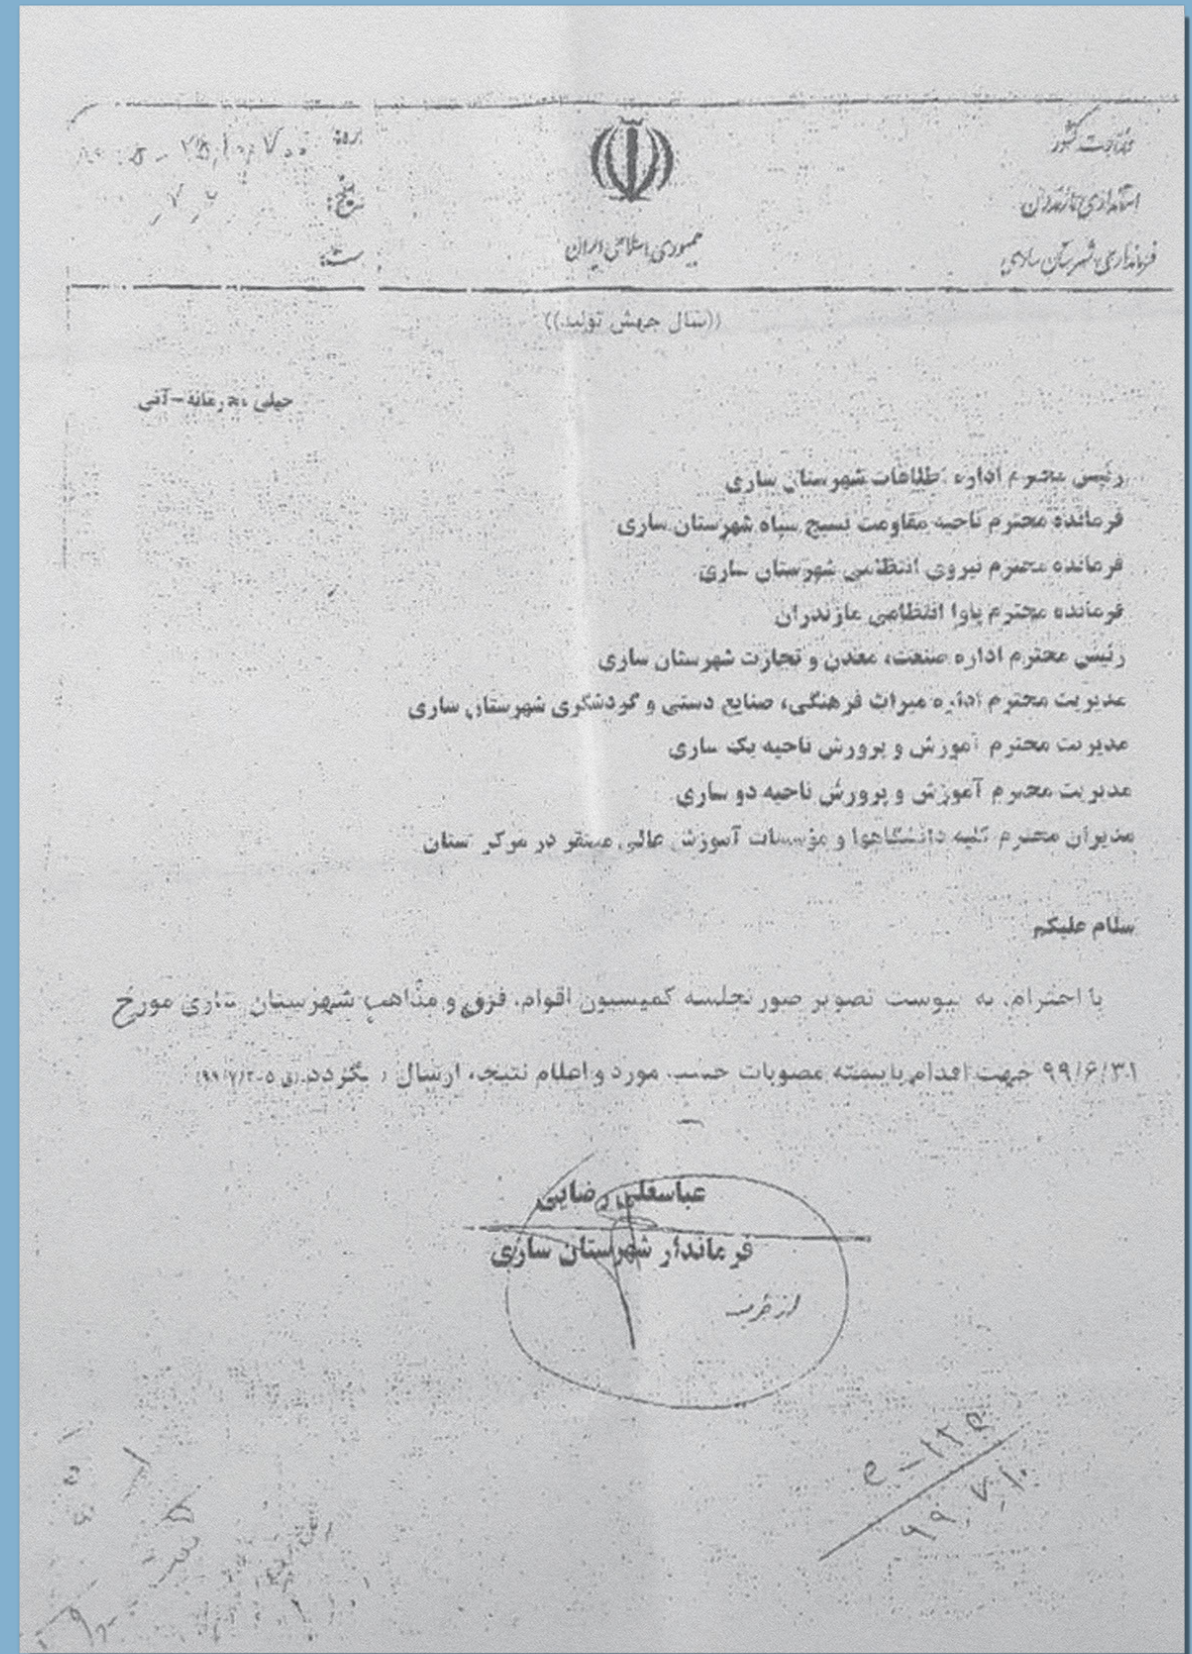 وزارت کشور
استانداری مازندران
فرمانداری شهرستان ساری
جمهوری اسلامی ایران
شماره:
تاریخ:
پیوست:
((سال جهش تولید))
خیلی محرمانه-آنی
رئیس محترم اداره اطلاعات شهرستان ساری
فرمانده محترم ناحیه مقاومت بسیج سپاه شهرستان ساری
فرمانده محترم نیروی انتظامی شهرستان ساری
فرمانده محترم پاوا انتظامی مازندران
رئیس محترم اداره صنعت، معدن و تجارت شهرستان ساری
مدیریت محترم اداره میراث فرهنگی، صنایع دستی و گردشگری شهرستان ساری
مدیریت محترم آموزش و پرورش ناحیه یک ساری
مدیریت محترم آموزش و پرورش ناحیه دو ساری
مدیران محترم کلیه دانشگاهها و مؤسسات آموزش عالی مستقر در مرکز استان
سلام علیکم
با احترام، به پیوست تصویر صورتجلسه کمیسیون اقوام، فرق و مذاهب شهرستان ساری مورخ
۹۹/۶/۳۱ جهت اقدام بایسته مصوبات حسب مورد و اعلام نتیجه، ارسال میگردد.
عباسعلی رضایی
فرماندار شهرستان ساری
از طرف
۹۹/۷/۱۰